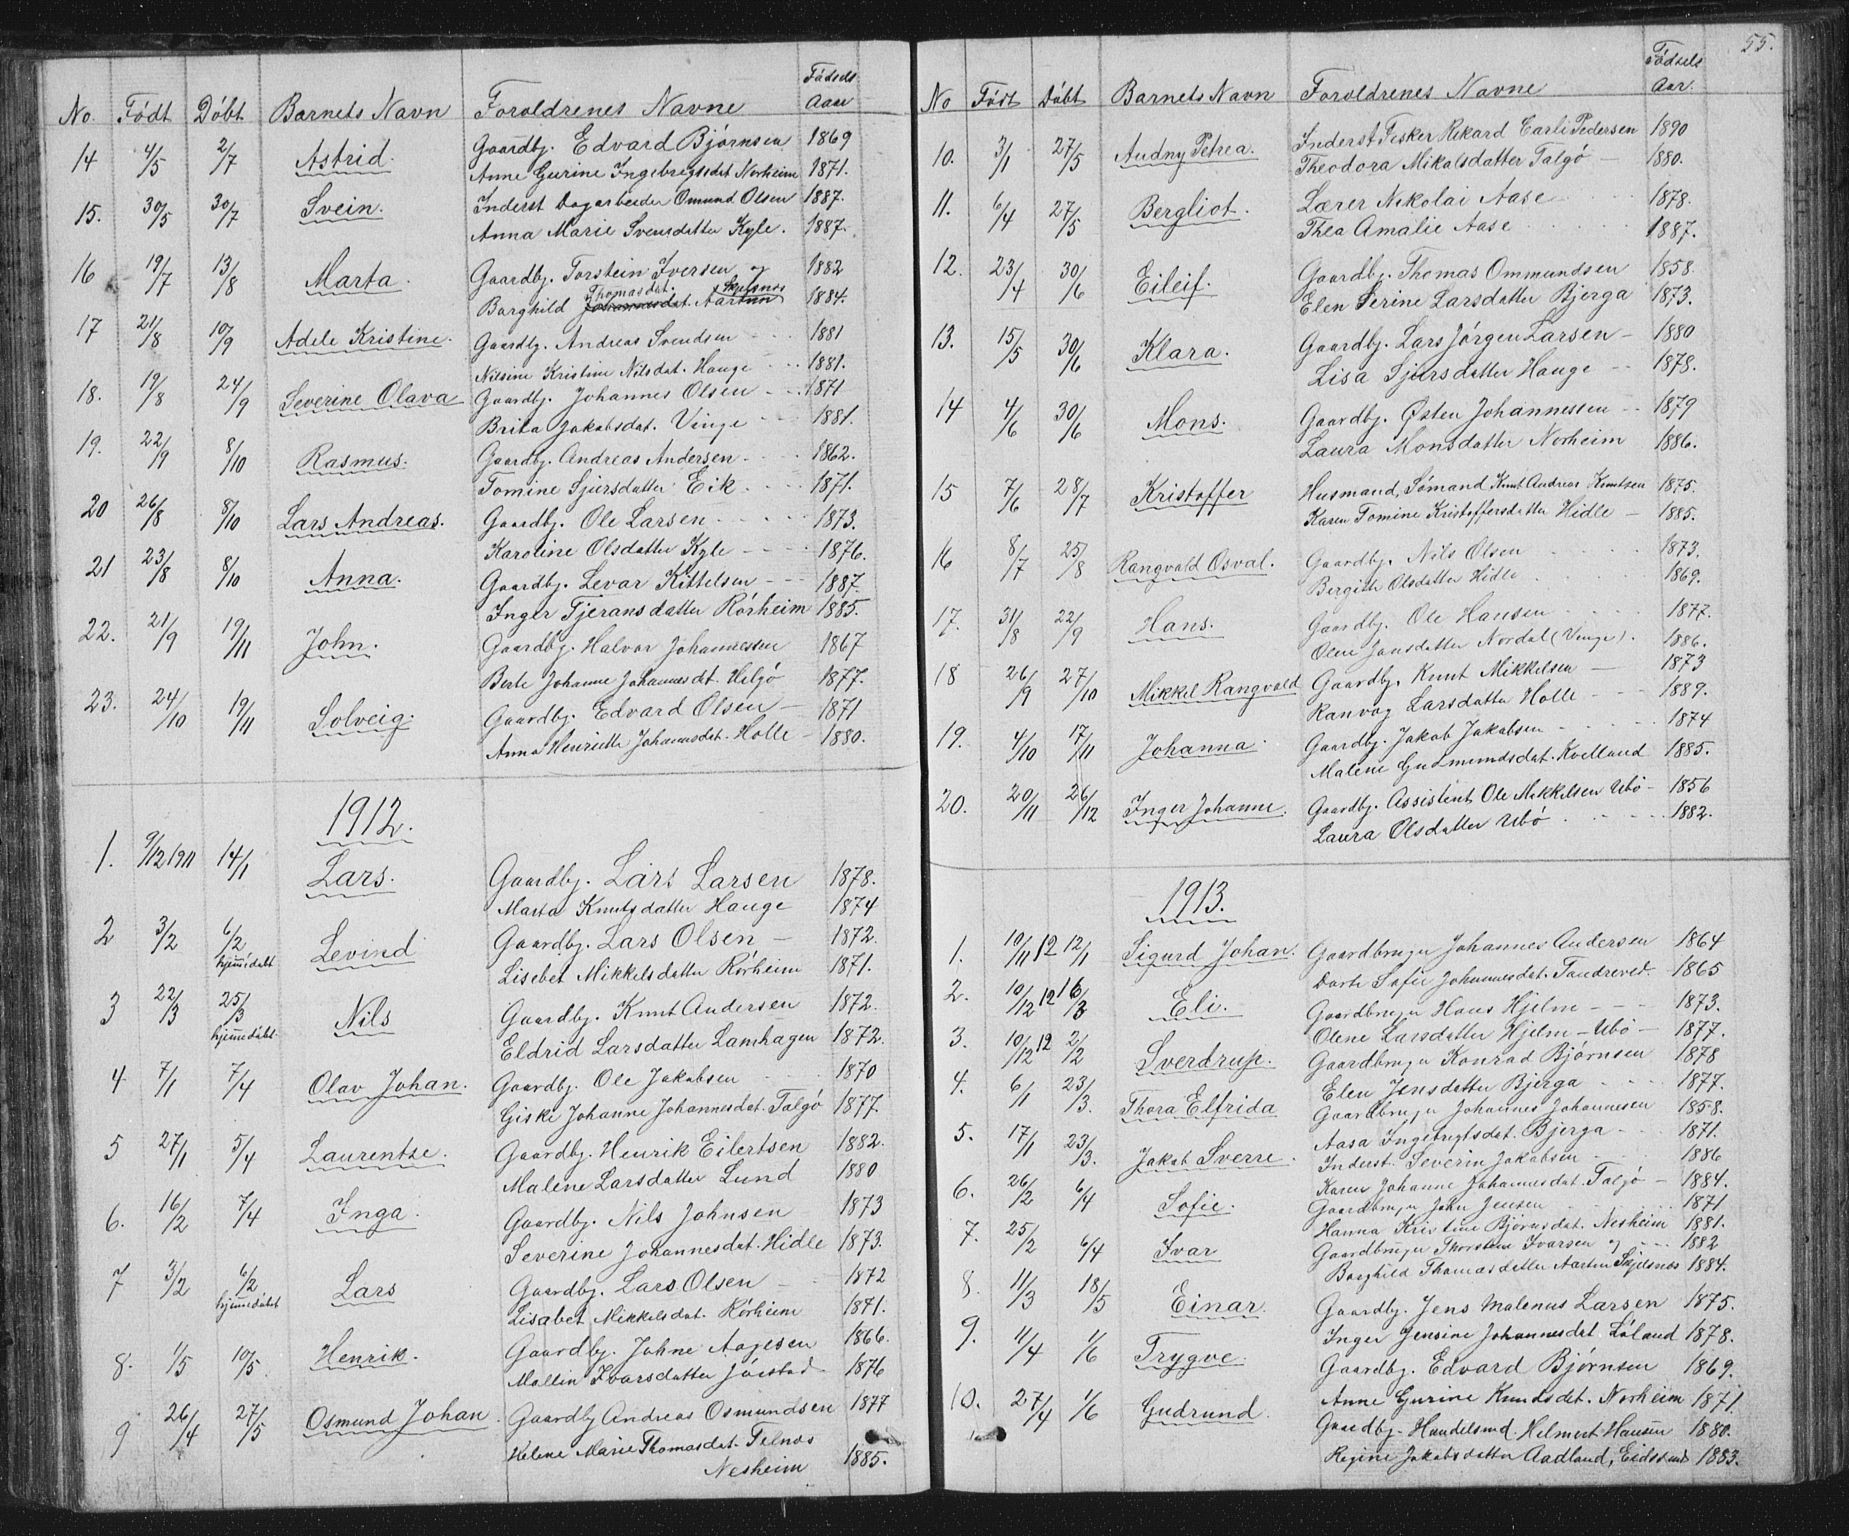 No. Født Døbt Barnets Navn Foroldrenes Navne Fødsels Aar
14 4/5 2/7 Astrid. Gaardby. Edvard Bjørnsen 1869
Anne Gurine Ingebrigtsdat Norheim 1871.
15. 30/5 30/7 Svein. Inderst Dagarbeider Omund Olsen 1887.
Anna Marie Svensdatter Kyle. 1887.
16 19/7 13/8 Marta. Gaardby. Torstein Iversen og 1882
Borghild Thomasdat. Skjelsnes 1884.
17 21/8 10/9 Adele Kristine. Gaardby. Andreas Svendsen 1881
Nilsine Kristine Nilsdat. Hauge 1881.
18. 19/8 24/9 Severine Olava Gaardby. Johannes Olsen 1871
Brita Jakobsdat. Vinge 1881.
19. 22/9 8/10 Rasmus. Gaardby. Andreas Andersen 1862.
Tomine Sjursdatter Eik 1871.
20 26/8 8/10 Lars Andreas. Gaardby. Ole Larsen 1873.
Karoline Olsdatter Kyle 1876.
21 23/8 8/10 Anna. Gaardby. Levar Kittelsen 1887.
Inger Tjeransdatter Rørheim 1885.
22. 21/9 19/11 John. Gaardby. Halvor Johannessen 1867
Berte Johanne Johannesdt. Helgø 1877.
23. 24/10 19/11 Solveig. Gaardby. Edvard Olsen 1871
Anna Henriette Johannesdat. Holle 1880.
1912.
1. 9/12 1911 14/1 Lars. Gaardby. Lars Larsen 1878.
Marta Knutsdatter Hauge 1874
2 3/2 6/2 hjemmedøbt Levind Gaardby. Lars Olsen 1872.
Lisebet Mikkelsdatter Rørheim 1871.
3 22/3 25/3 hjemmedøbt Nils Gaardby. Knut Andersen 1872.
Eldrid Larsdatter Lamhagen 1872.
4 7/1 7/4 Olav Johan. Gaardby. Ole Jakobsen 1870
Giske Johanne Johannesdat. Talgø 1877.
5 27/1 5/4 Laurentze. Gaardby. Henrik Eilertsen 1882.
Malene Larsdatter Lund 1880
6. 16/2 7/4 Inga. Gaardby. Nils Johnsen 1873
Severine Johannesdat. Hidle 1873.
7 3/2 6/2 hjemmedøbt Lars Gaardby. Lars Olsen 1872
Lisabet Mikkelsdat. Rørheim 1871.
8. 1/5 10/5 Henrik. Gaardby. Johne Aagesen 1866.
Mallin Ivarsdatter Jøistad 1876
9 26/4 27/5 Osmund Johan. Gaardby Andreas Osmundsen 1877
Helene Marie Thomasdat. Felnos
Nesheim 1885.
55.
No Født Døbt Barnets Navn Foroldrenes Navne Fødsels Aar.
10. 3/1 27/5 Audny Petrea. Inderst Fisker Rikard Carli Pedersen 1890
Theodora Mikalsdatter Talgø 1880.
11. 6/4 27/5 Bergliot. Lærer Nikolai Aase 1878.
Thea Amalie Aase 1887.
12. 23/4 30/6 Eileif. Gaardby. Thomas Ommundsen 1858.
Elen Serine Larsdatter Bjerga 1873.
13. 15/5 30/6 Klara. Gaardby. Lars Jørgen Larsen 1880
Lisa Sjursdatter Hauge 1878.
14 4/6 30/6 Mons. Gaardby. Østen Johannessen 1879
Laura Monsdatter Norheim 1886.
15 7/6 28/7 Kristoffer Husmand, Sømand Knut Andreas Knutsen 1875.
Karen Tomine Kristoffersdatter Hidle 1885.
16 8/7 25/8 Rangvald Osval. Gaardby. Nils Olsen 1873.
Bergitte Olsdatter Hidle 1869.
17. 31/8 22/9 Hans. Gaardby. Ole Hansen 1877.
Olene Jonsdatter Nordal (Vinge). 1886.
18 26/9 27/10 Mikkel Rangvald Gaardby. Knut Mikkelsen 1873
Ranvog Larsdatter Holle 1889.
19. 4/10 17/11 Johanna. Gaardby. Jakob Jakobsen 1874
Malene Gudmundsdat. Kvelland 1885.
20. 20/11 26/12 Inger Johanne. Gaardby. Assistent Ole Mikkelsen Ubø 1856
Laura Olsdatter Ubø 1882.
1913.
1. 10/11 12 12/1 Sigurd Johan. Gaardbruger Johannes Andersen 1864
Dorte Sofie Johannesdat. Tandreved. 1865
2. 10/12 12 16/3 Eli. Gaardbruger Hans Hjelm 1873.
Olene Larsdatter Hjelm - Ubø 1877.
3. 10/12 12 2/2 Sverdrup. Gaardbruger Konrad Bjørnsen 1878
Elen Jensdatter Bjerga 1877.
4. 6/1 23/3. Thora Elfrida Gaardbruger Johannes Johannesen 1858.
Aasa Ingebrigtsdat. Bjerga 1871.
5. 17/1 23/3. Jakob Sverre. Inderst. Severin Jakobsen 1886
Karen Johanne Johannesdat. Talgø 1884.
6. 26/2 6/4 Sofie. Gaardbruger John Jensen 1871
Hanna Kristine Bjørnsdat. Nesheim 1881.
7. 25/2 6/4 Ivar Gaardbruger Thorstein Ivarsen og 1882
Borghild Thomasdatter Aartun Skjelsnes 1884.
8. 11/3 18/5 Einar. Gaardby. Jens Malenus Larsen 1875.
Inger Jensine Johannesdat. Løland 1878.
9. 11/4 1/6 Trygve. Gaardby. Edvard Bjørnsen 1869.
Anne Gurine Knudsdet. Norheim 1871.
10. 27/4 1/6 Gudrund. Gaardby. Handelsmd. Helmert Hansen 1880.
Regine Jakobsdatter Aadland, Eidssund 1883.